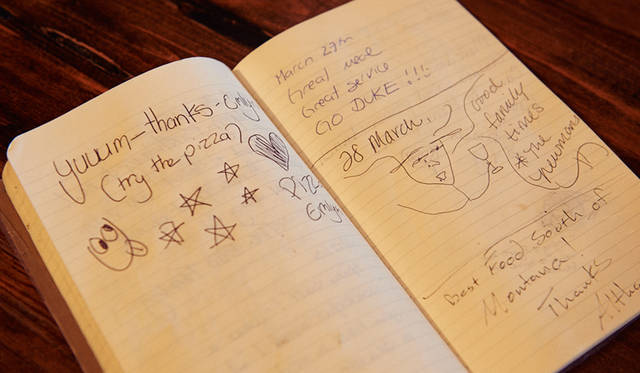 yuuum-thanks-Emily
(try the pizza)
Emily
March 27th
Great meal
Great service
GO DUKE !!!
28 March,
Good
family
times
*The
Best Food South of
Montana!
Thanks